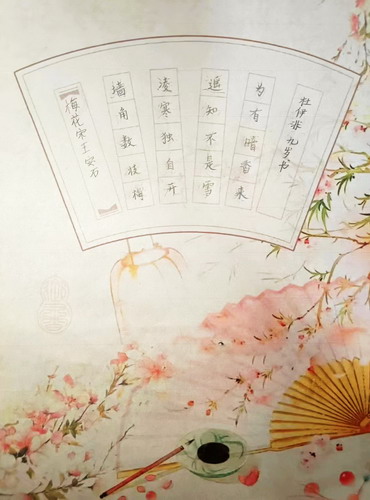 梅花 宋 王安石
墙角数枝梅
凌寒独自开
遥知不是雪
为有暗香来
杜伊 九岁书